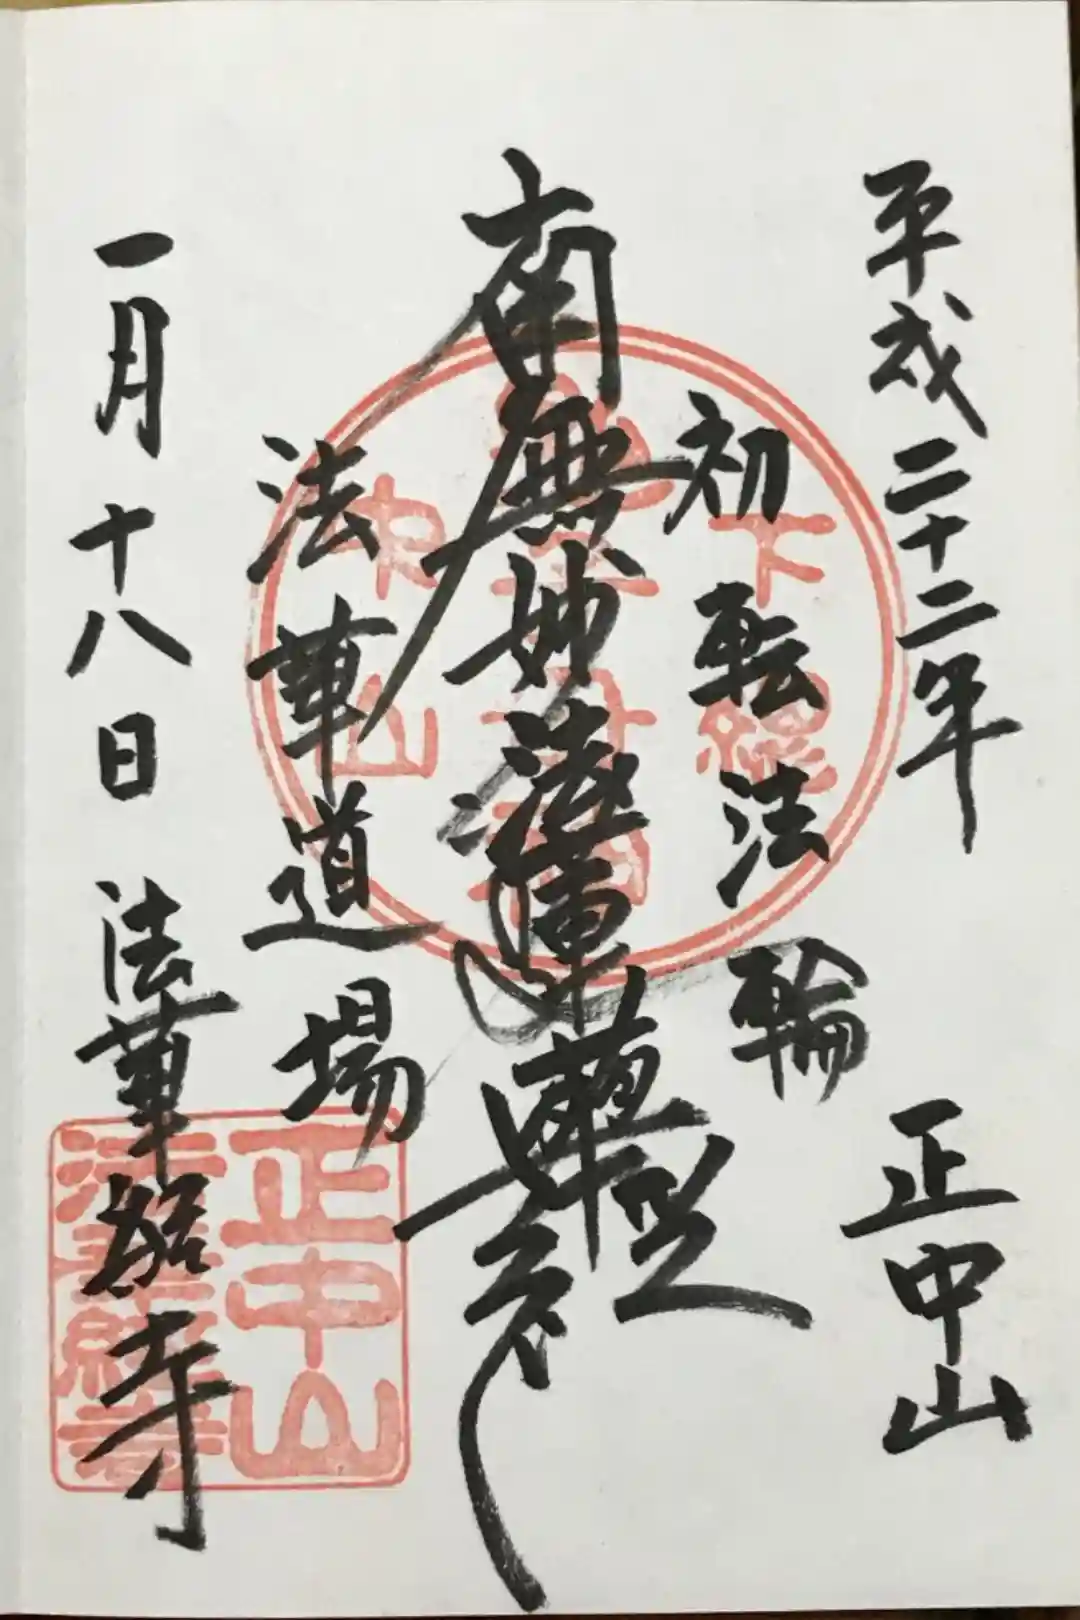 平成二十二年 正中山
初転法輪
南無妙法蓮華経
法華道場
一月十八日 法華経寺
下総
中山
正中山
法華經寺